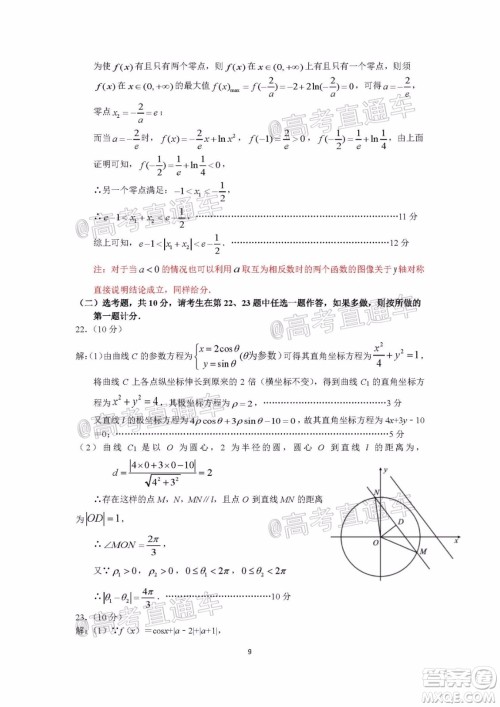 为使 f(x) 有且只有两个零点，则 f(x) 在 x∈(0,+∞) 有且只有一个零点，则须
f(x) 在 x∈(0,+∞) 的最大值 f(x)max = f(-2/a) = -2+2ln(-2/a) = 0，可得 a = -2/e，
零点 x₂ = -2/a = e；
而当 a = -2/e 时，f(x) = -2/e x + ln x²，f(-1) = 2/e > 0，f(-1/2) = 1/e + ln 1/4，由上面
证明可知，f(-1/2) = 1/e + ln 1/4 < 0，
∴另一个零点满足：-1 < x₁ < -1/2，
∴ e-1 < x₁+x₂ < e-1/2．………11 分
综上可知，e-1 < |x₁+x₂| < e-1/2．………12 分
注：对于当 a<0 的情况也可以利用 a 取互为相反数时的两个函数的图像关于 y 轴对称
直接说明结论成立，同样给分．
（二）选考题，共 10 分，请考生在第 22、23 题中任选一题作答，如果多做，则按所做的
第一题计分．
22.（10 分）
解：（1）由曲线 C 的参数方程为 {x=2cosθ y=sinθ (θ为参数) 可得其直角坐标方程为 x²/4 + y² = 1，
将曲线 C 上各点纵坐标伸长到原来的 2 倍（横坐标不变），得到曲线 C₁ 的直角坐标方程
为 x²+y²=4，其极坐标方程为 ρ=2，………3 分
又直线 l 的极坐标方程为 4ρcosθ+3ρsinθ-10=0，故其直角坐标方程为 4x+3y-10
=0；………5 分
（2）曲线 C₁ 是以 O 为圆心，2 为半径的圆，圆心 O 到直线 l 的距离为，
d = |4×0+3×0-10|/√(4²+3²) = 2
∴存在这样的点 M，N，MN∥l，且点 O 到直线 MN 的距离
为 |OD|=1，
∴∠MON = 2π/3，
又∵ρ₁>0，ρ₂>0，0≤θ₁<2π，0≤θ₂<2π，
∴|θ₁-θ₂| = 4π/3．………10 分
23.（10 分）
解：（1）∵f（x）=cosx+|a-2|+|a+1|，
y
N
D
O
x
M
l
9
@高考直通车
@高考直通车
@高考直通车
@高考直通车
答案圈